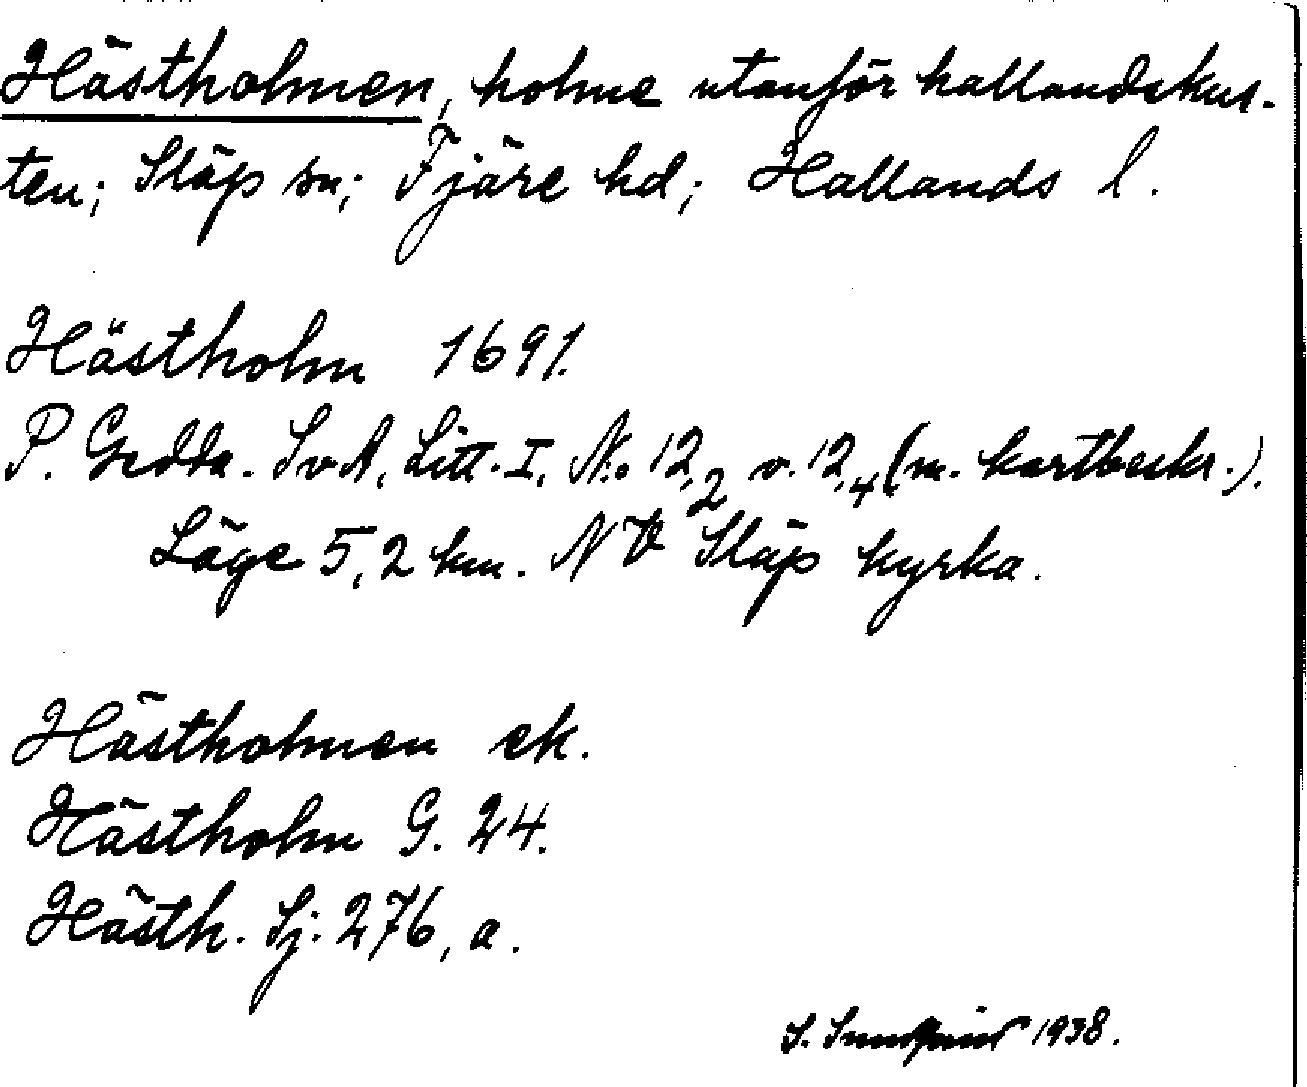 Hästholmen, holme utanför hallandskus-
ten; Släp sn; Fjäre hd; Hallands l.
Hästholm 1691.
P. Gedda. SvA, Litt. I, No 12,2 o. 12,4 (m. kartbeskr.).
Läge 5,2 km. NV Släp kyrka.
Hästholmen ek.
Hästholm G. 24.
Hästh. Sj: 276, a.
S. Sundqvist 1938.